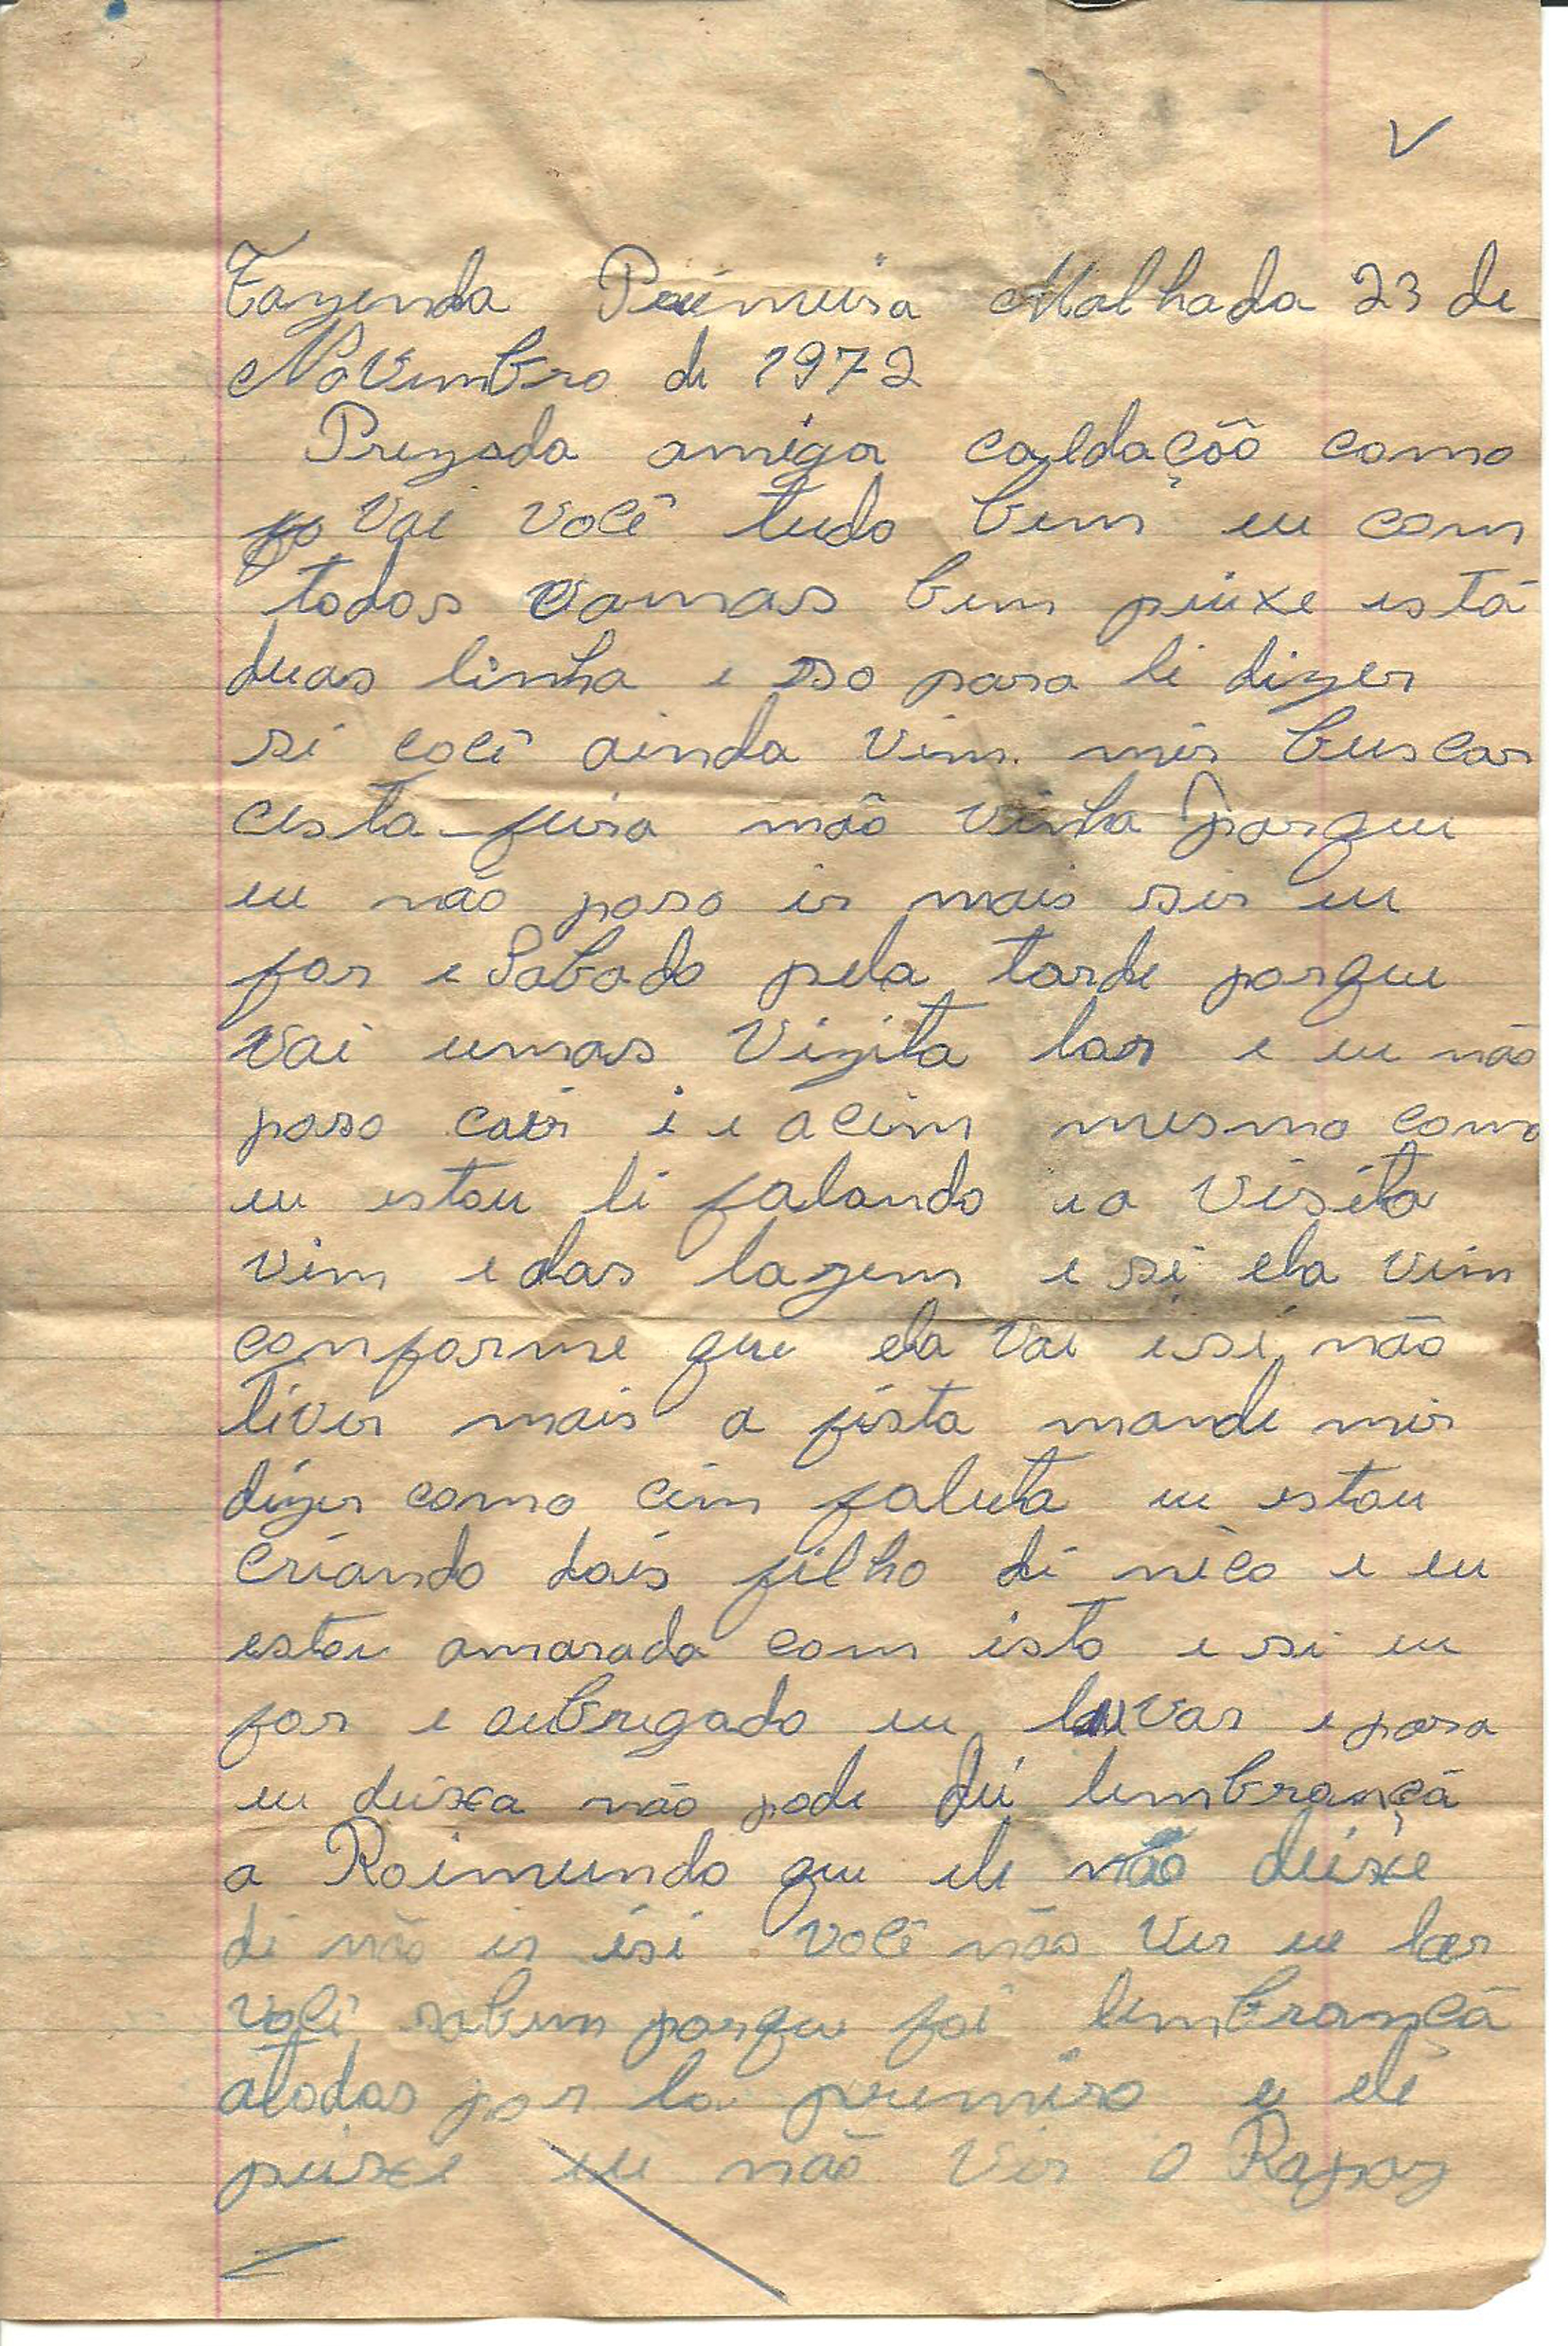 V
Fazenda Primeira Malhada 23 de
Novembro de 1972
Prezada amiga caldação como
vai você tudo bem eu com
todos vamas bem peixe está
duas linha e so para li dizer
si você ainda vim mir buscar
cesta-feira não vinha porque
eu não poso ir mais sir eu
for e Sabado pela tarde porque
vai umas vizita lar e eu não
poso cair i e acim mesmo como
eu estou li falando e a visita
vim e das lagem e si ela vim
conforme que ela vai isi não
tiver mais a fista mande mir
dizer como cim faluta eu estou
criando dois filho di nico e eu
estou amarada com isto e si eu
for e aubrigado eu levar e para
eu deixa não pode dei lembrançã
a Raimundo que ele não deixe
di não ir isi você não ver eu lar
você sabem porque foi lembrançã
atodos por la premiro e ele
peixe eu não vir o Rapaz